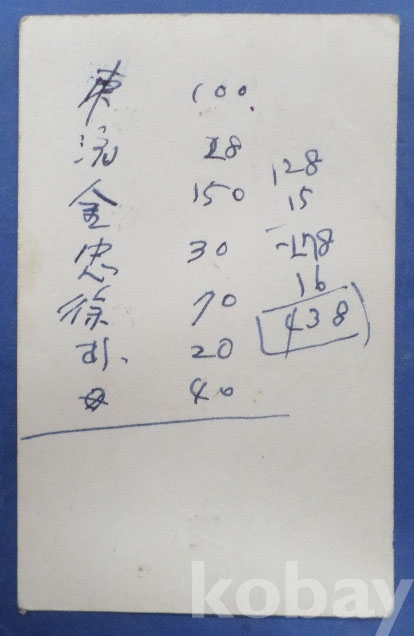 100.
28
金 150
忠 30
徐 70
20
40
128
15
278
16
438
kobay